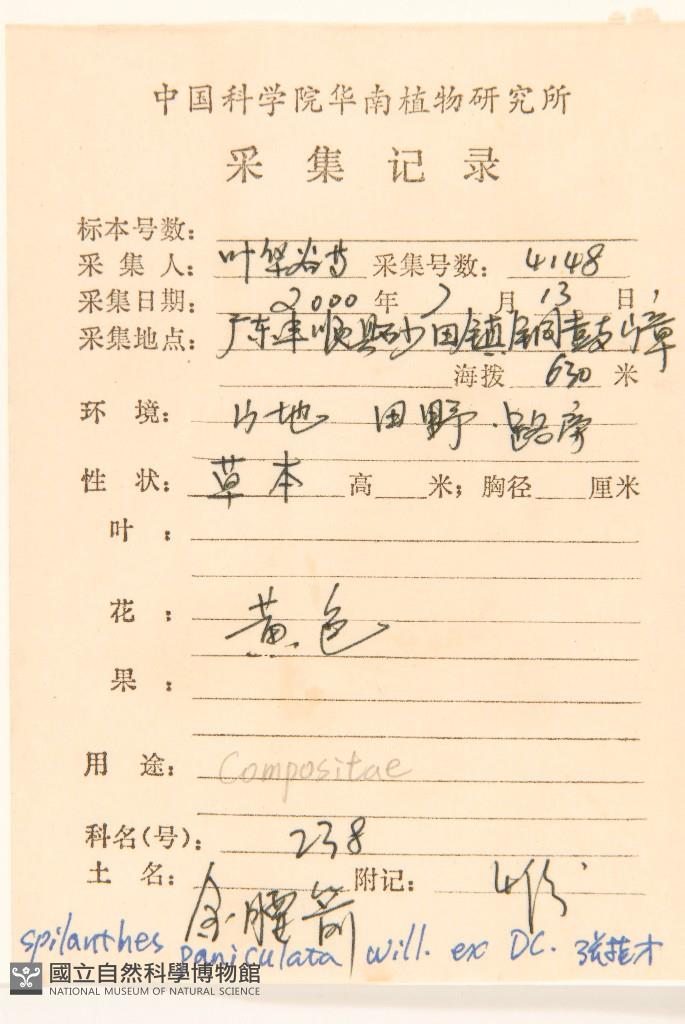 中国科学院华南植物研究所
采集记录
标本号数:
采集人: 叶华谷等 采集号数: 4148
采集日期: 2000 年 7 月 13 日
采集地点: 广东丰顺县砂田镇铜鼓嶂
海拨 630 米
环境: 田野 路旁
性状: 草本 高 米; 胸径 厘米
叶:
花: 黄色
果:
用途: Compositae
科名(号): 238
土名: 附记: 4份
spilanthes paniculata will. ex DC.
國立自然科學博物館
NATIONAL MUSEUM OF NATURAL SCIENCE